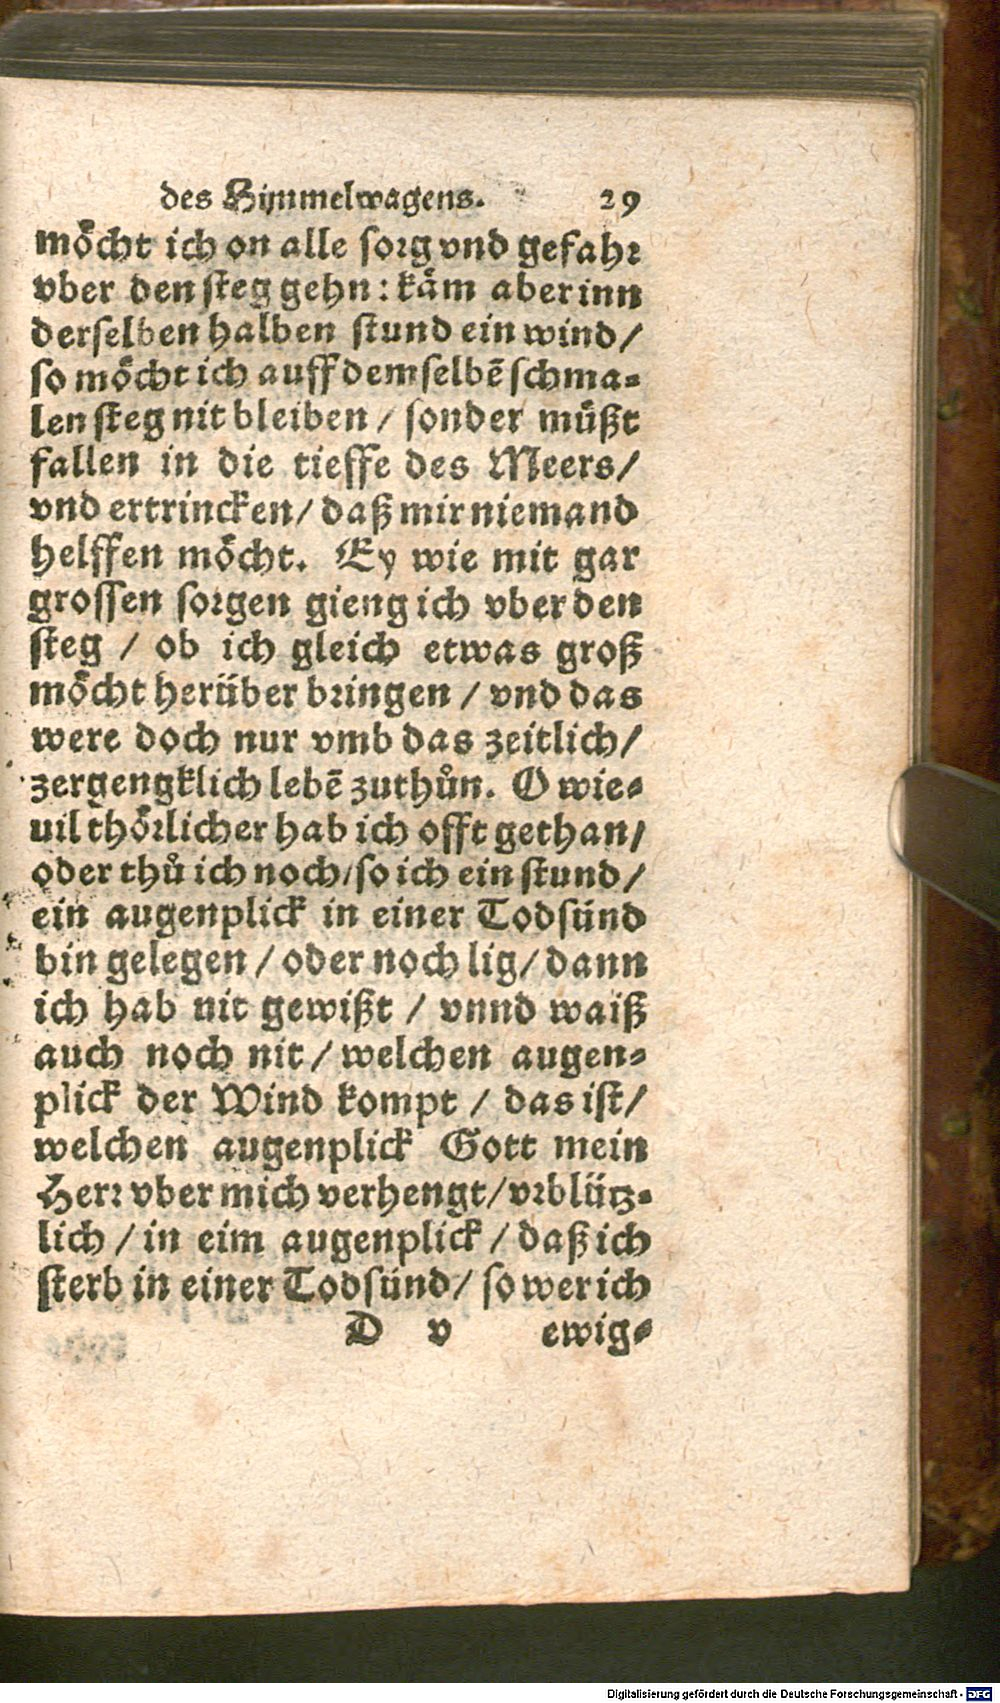 des Himmelwagens. 29
moͤcht ich on alle ſorg vnd gefahr
vber den ſteg gehn: kaͤm aber inn
derſelben halben ſtund ein wind/
ſo moͤcht ich auff demſelbē ſchma⸗
len ſteg nit bleiben / ſonder muͤßt
fallen in die tieffe des Meers/
vnd ertrincken/ daß mir niemand
helffen moͤcht. Ey wie mit gar
groſſen ſorgen gieng ich vber den
ſteg / ob ich gleich etwas groß
moͤcht heruͤber bringen / vnd das
were doch nur vmb das zeitlich/
zergengklich lebē zuthuͦn. O wie⸗
uil thoͤrlicher hab ich offt gethan/
oder thuͦ ich noch/ ſo ich ein ſtund/
ein augenplick in einer Todſuͤnd
bin gelegen / oder noch lig/ dann
ich hab nit gewißt / vnnd waiß
auch noch nit / welchen augen⸗
plick der Wind kompt / das iſt/
welchen augenplick Gott mein
Herr vber mich verhengt/ vrbluͤtz⸗
lich / in eim augenplick / daß ich
ſterb in einer Todſuͤnd/ ſo wer ich
D v ewig⸗
Digitalisierung gefördert durch die Deutsche Forschungsgemeinschaft - DFG